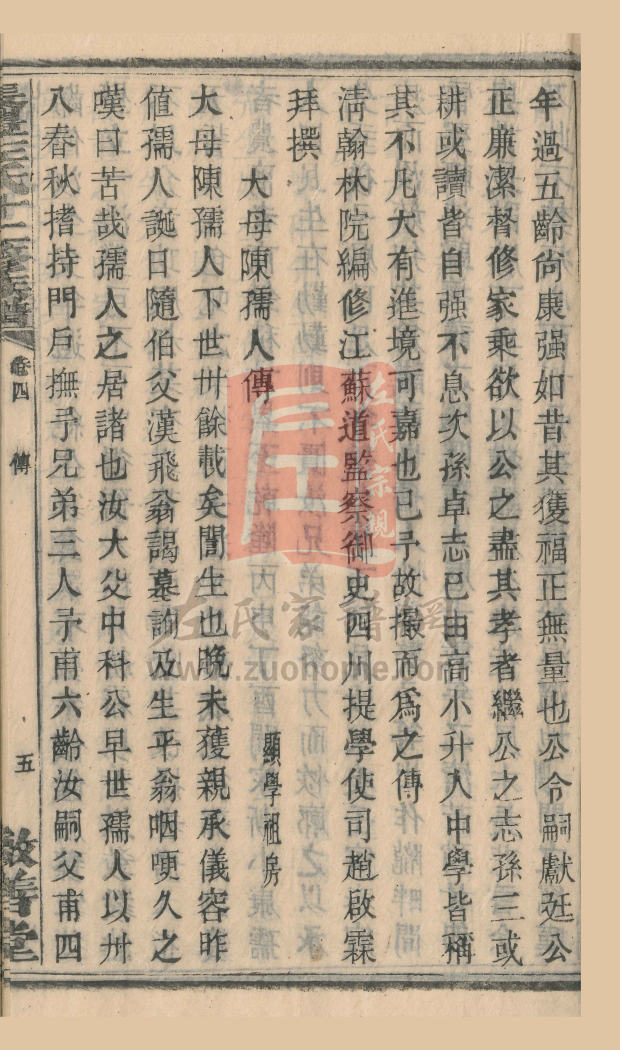 年過五齡尙康强如昔其獲福正無量也公令嗣獻廷公
正廉潔督修家乘欲以公之盡其孝者繼公之志孫三或
耕或讀皆自强不息次孫卓志已由高小升入中學皆稱
其不凡大有進境可嘉也已予故撮而爲之傳
淸翰林院編修江蘇道監察御史四川提學使司趙啟霖
拜撰
大母陳孺人傳
顯學祖房
大母陳孺人下世卅餘載矣誾生也晚未獲親承儀容昨
值孺人誕日隨伯父漢飛翁謁墓詢及生平翁咽哽久之
嘆曰苦哉孺人之居諸也汝大父中科公早世孺人以卅
八春秋揩持門戶撫予兄弟三人予甫六齡汝嗣父甫四
卷四
傳
五
敦善堂
左氏宗親
左氏家譜網
www.zuohome.com